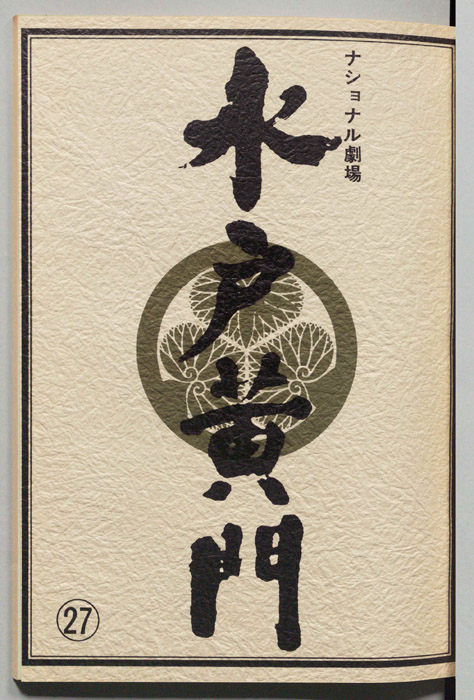 ナショナル劇場
水戸黄門
27